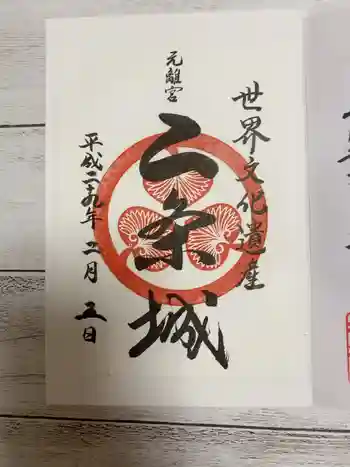 世界文化遺産
元離宮
二条城
平成二十九年二月五日